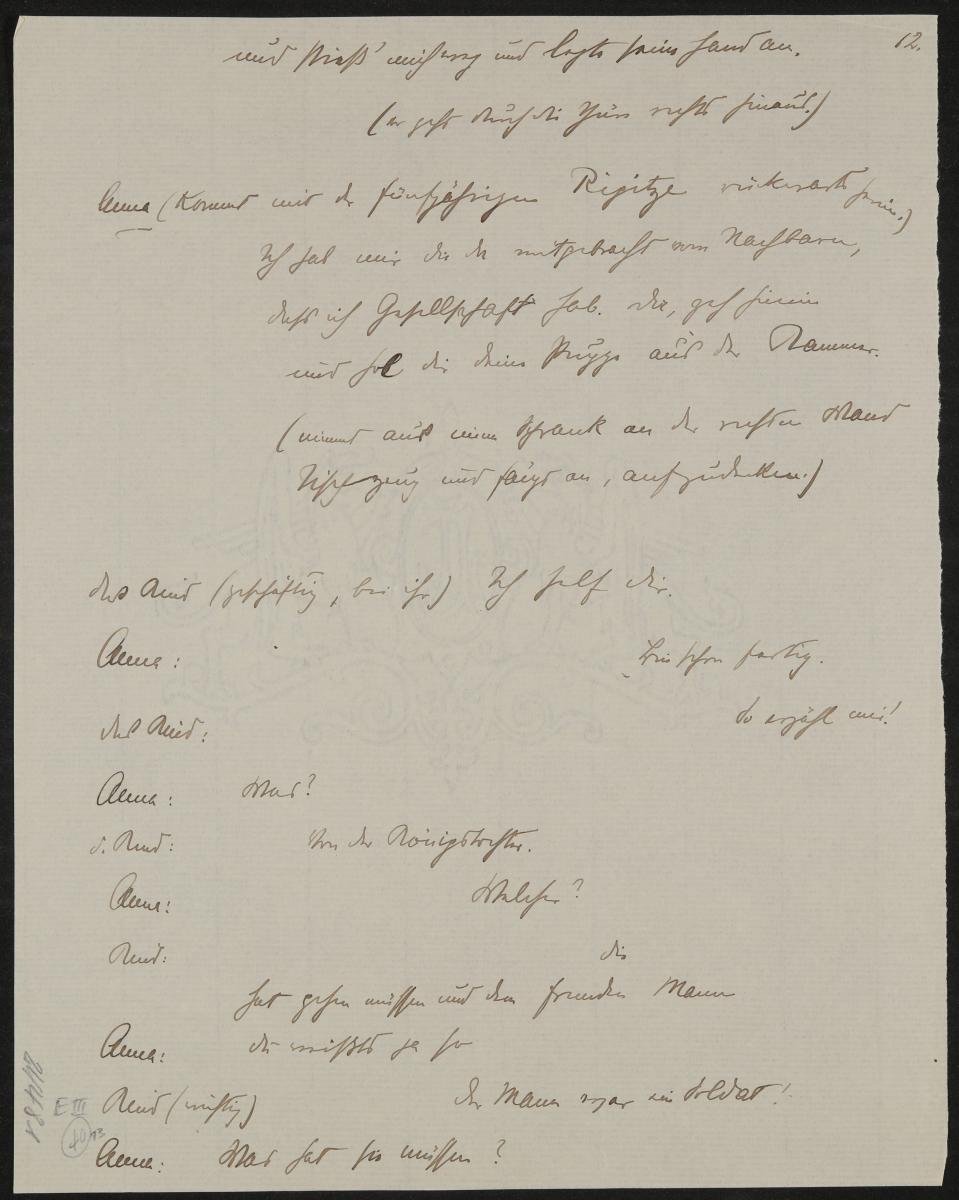 12.
und stieß' mich weg und legte seine Hand an.
(er geht durch die Thüre rechts hinaus.)
Anna (kommt mit der fünfjährigen Rigitze rückwärts herein.)
Ich hab mir die da mitgebracht vom Nachbarn,
daß ich Gesellschaft hab. Du, geh hinein
und hol dir deine Puppe aus der Kammer.
(nimmt aus einem Schrank an der rechten Wand
Tischzeug und fängt an, aufzudecken.)
das Kind (geschäftig, bei ihr) Ich helf dir.
Anna: Bin schon fertig.
das Kind: So erzähl mir!
Anna: Was?
d. Kind: Von der Königstochter.
Anna: Welcher?
Kind: die
hat gehen müssen und dem fremden Mann
Anna: du weißts ja so
Kind (wichtig) Der Mann war ein Soldat!
Anna: Was hat sie müssen?
E III
40 13